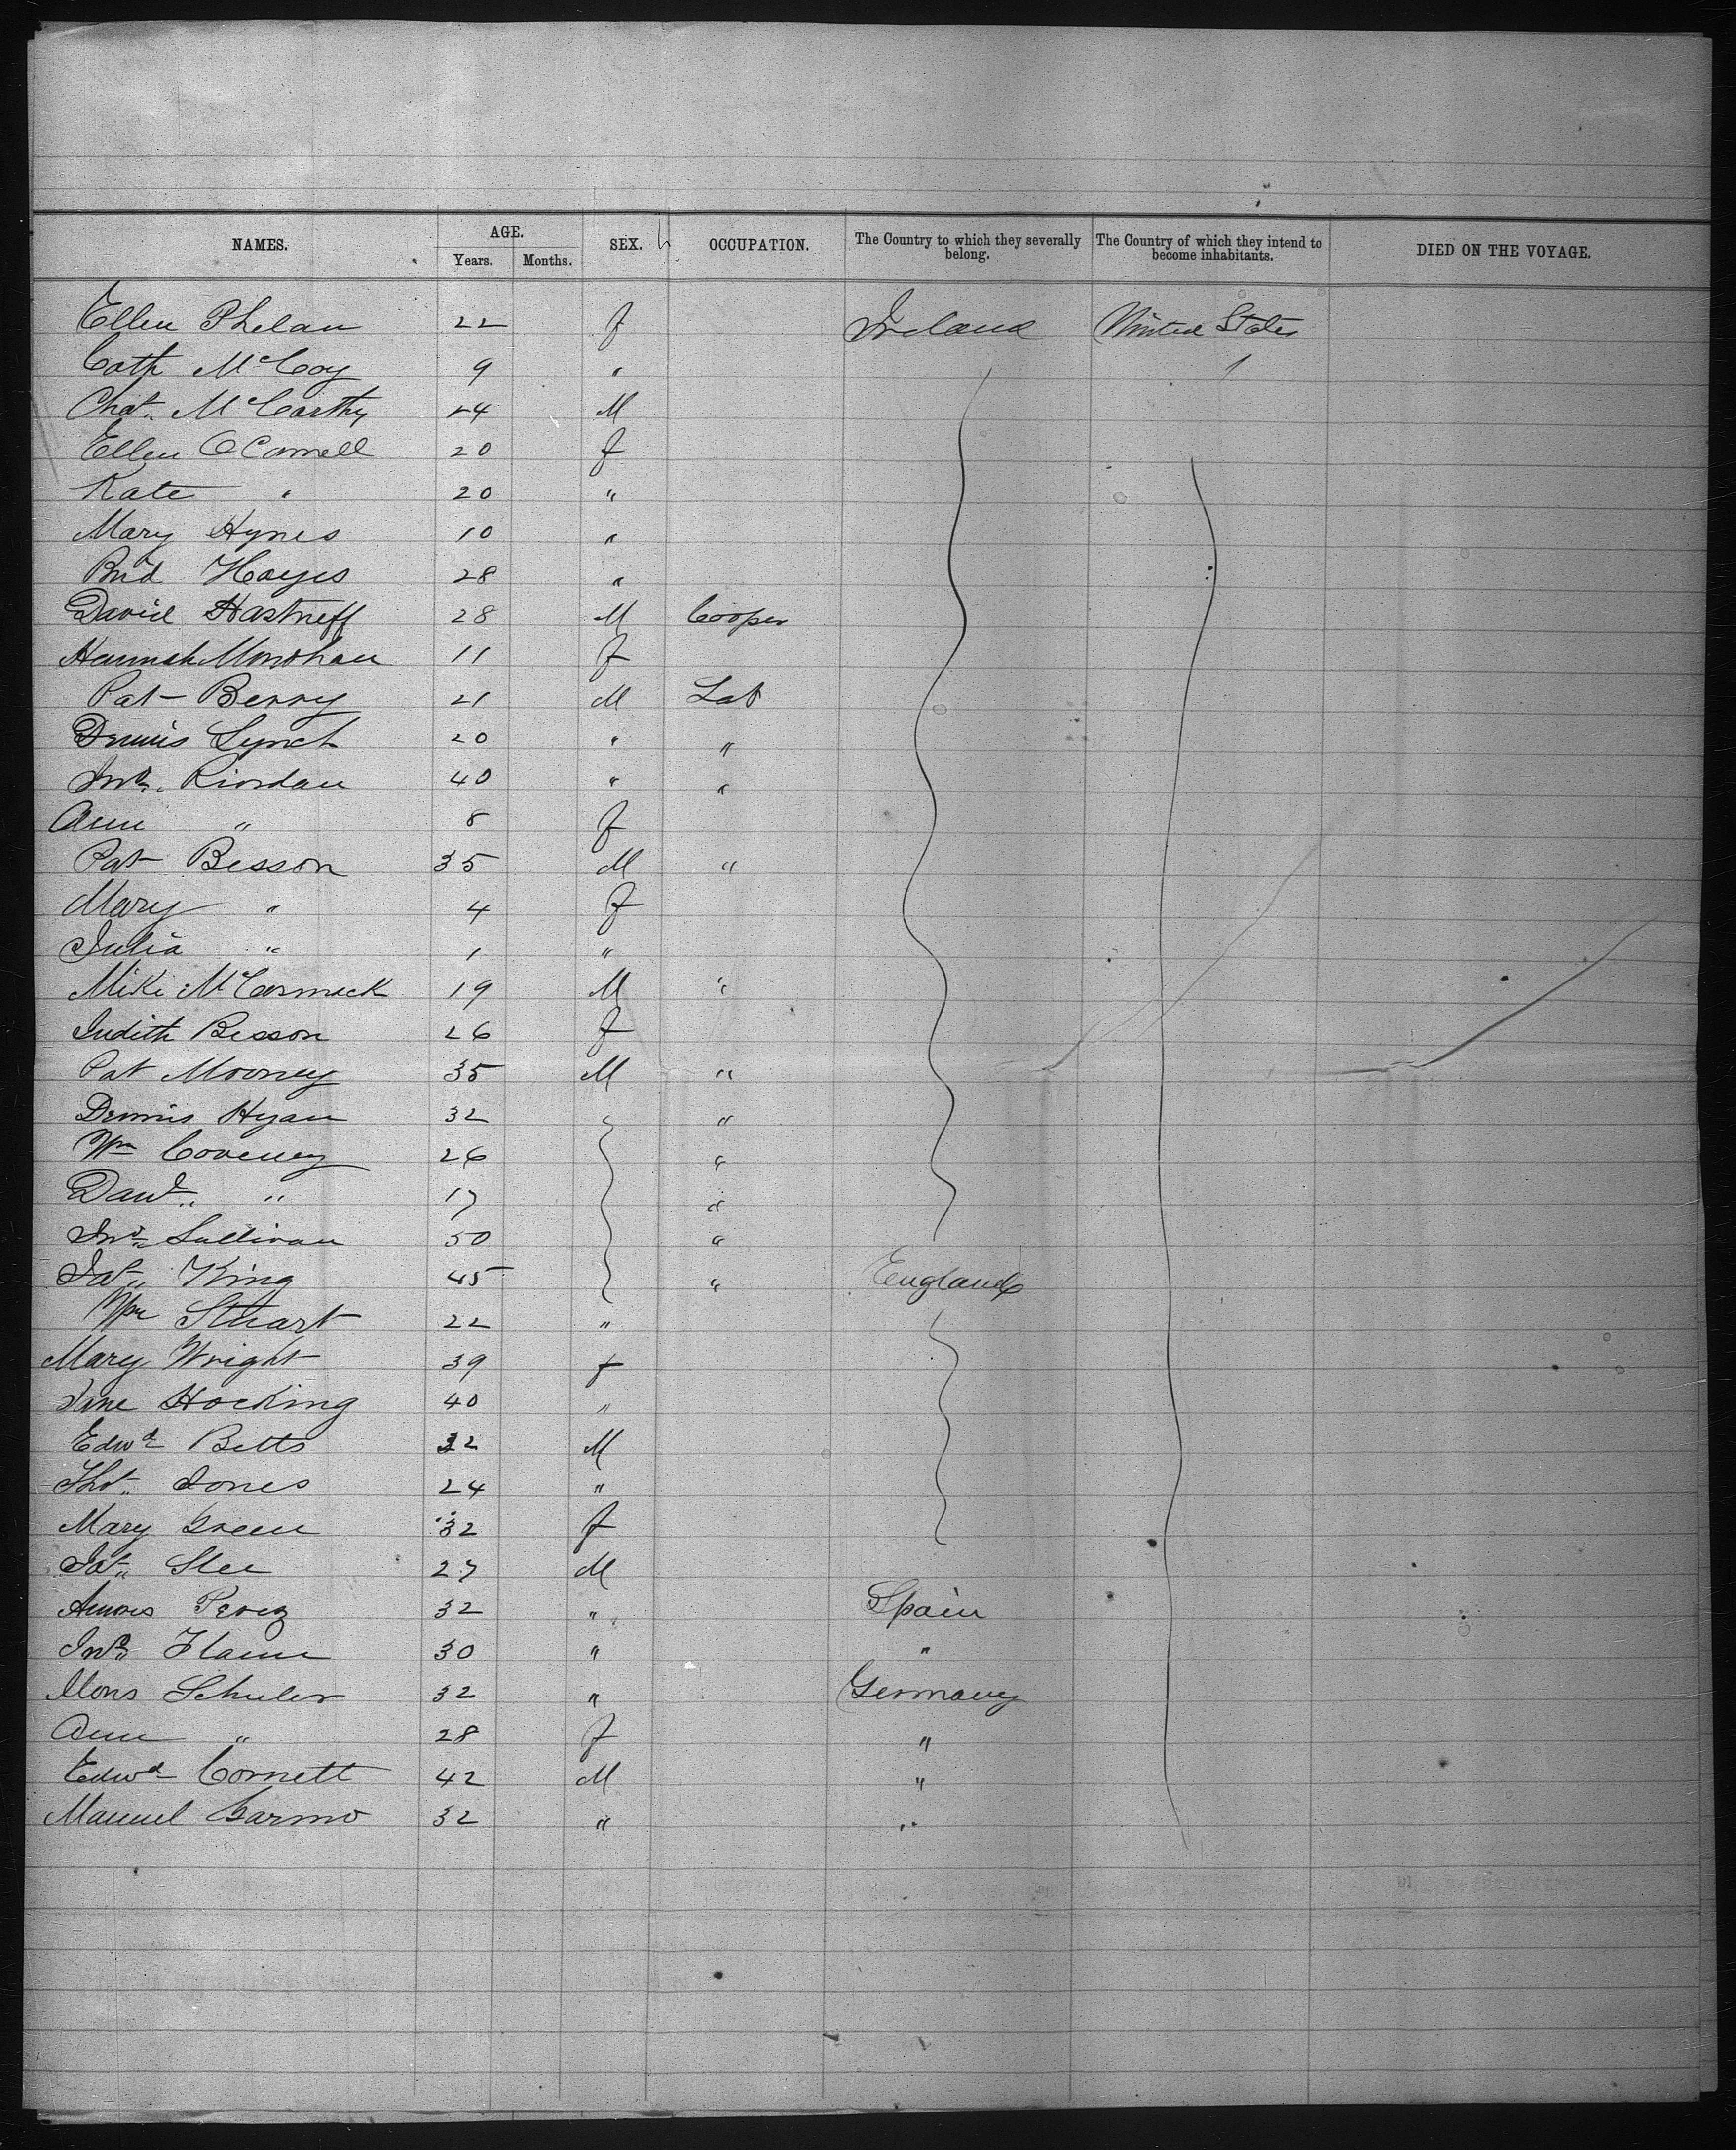 NAMES. AGE. SEX. OCCUPATION. The Country to which they severally belong. The Country of which they intend to become inhabitants. DIED ON THE VOYAGE.
Years. Months.
Ellen Phelan 22 f Ireland United States
Cath McCoy 9 "
Chas. McCarthy 24 M
Ellen OConnell 20 f
Kate " 20 "
Mary Hynes 10 "
Brid Hayes 28 "
David 28 M Cooper
Hannah Monohan 11 f
Pat Berry 21 M Lab
Dennis Lynch 20 " "
Jno. Riordan 40 " "
Ann " 8 f
Pat Besson 35 M "
Mary " 4 f
Julia " 1 "
Mike McCormack 19 M "
Judith Besson 26 f
Pat Mooney 35 M "
Dennis Hyan 32 "
Wm Coveney 26 "
Danl. " 17 "
Jno. Sullivan 50 "
Jas. King 45 " England
Wm Stuart 22 "
Mary Wright 39 f
Jane Hocking 40 "
Edwd Betts 32 M
Thos. Jones 24 "
Mary Green 32 f
Jas. Slee 27 M
Perez 32 " Spain
Jno. 30 " "
Mons Schuler 32 " Germany
Ann " 28 f "
Edwd Cornett 42 M "
Manuel Garmo 32 " "